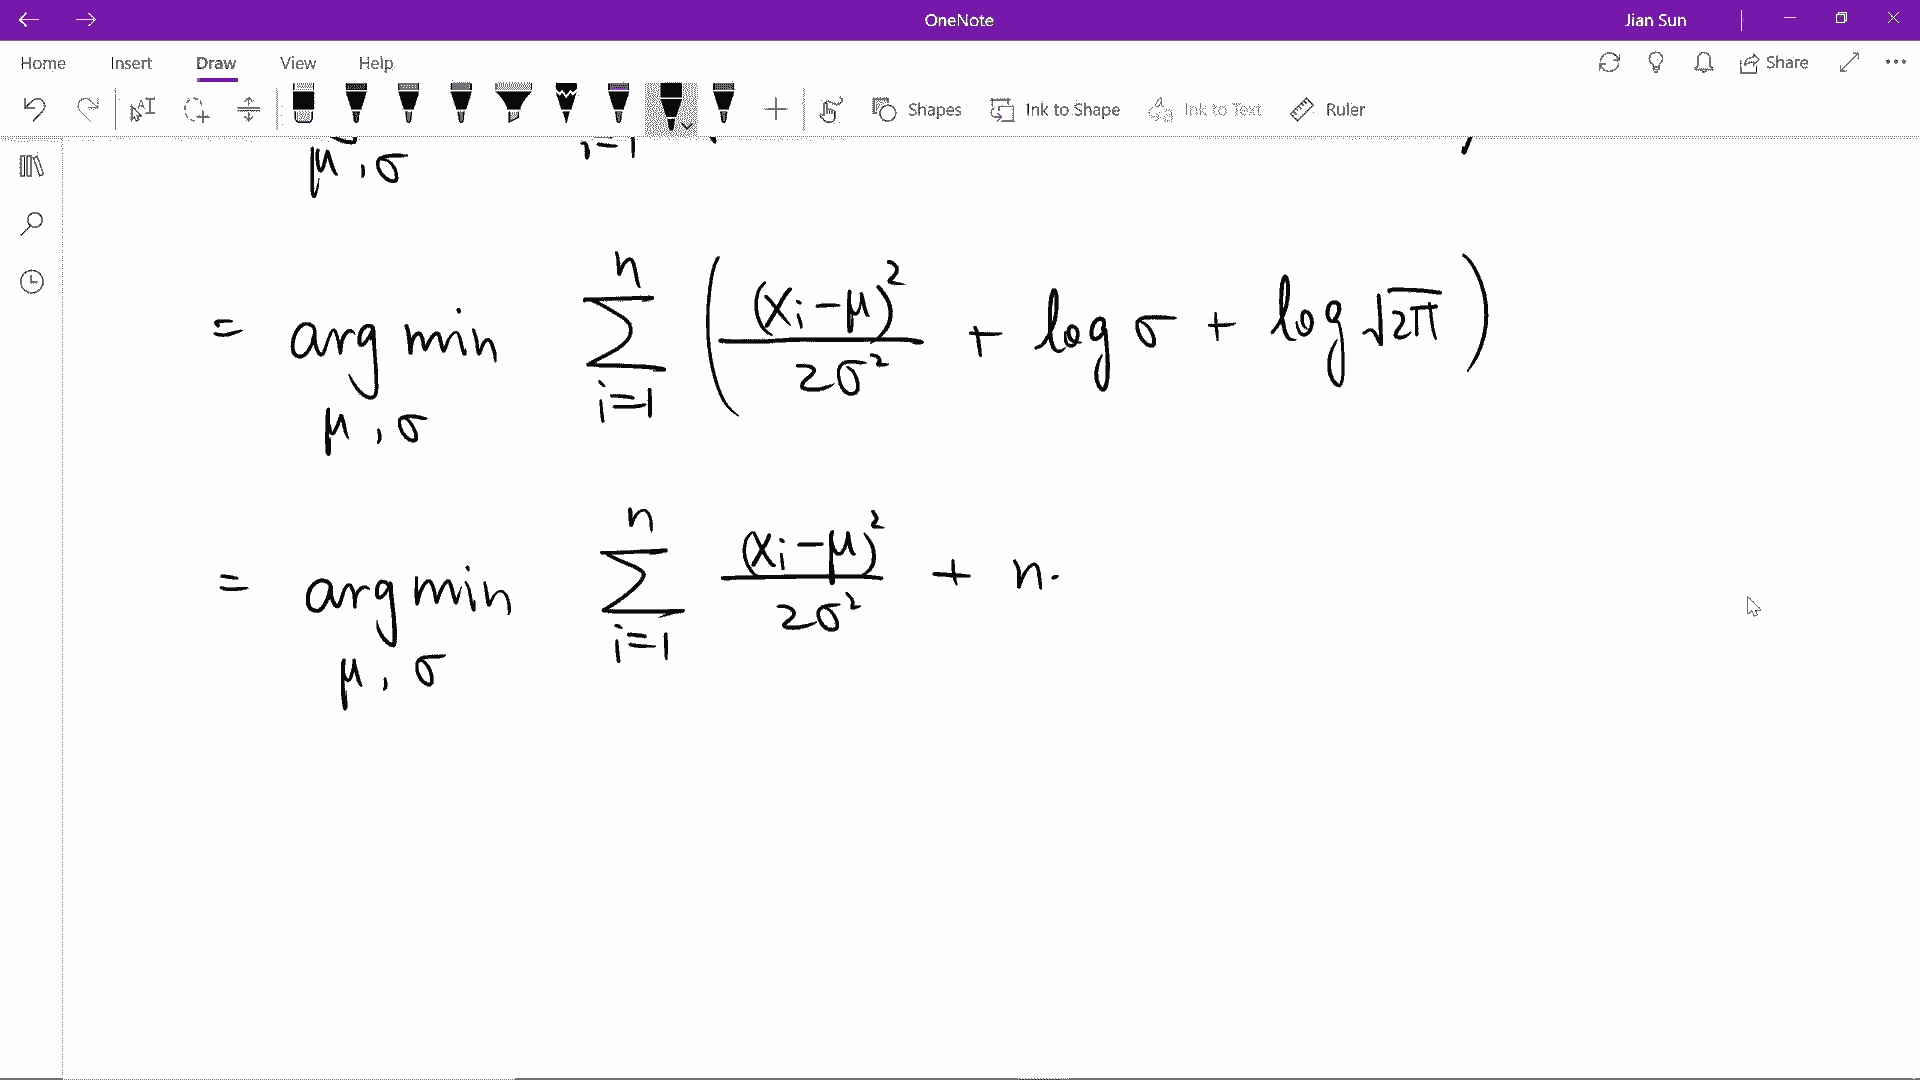 OneNote
Jian Sun
Home Insert Draw View Help
Share
Shapes Ink to Shape Ink to Text Ruler
μ, σ i=1
= arg min μ, σ ∑ i=1 n ( (xi − μ)² / 2σ² + log σ + log √2π )
= arg min μ, σ ∑ i=1 n (xi − μ)² / 2σ² + n·